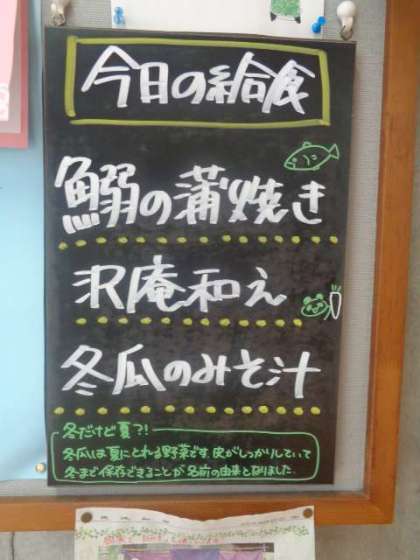 今日の給食
鰯の蒲焼き
沢庵和え
冬瓜のみそ汁
冬だけど夏?!
冬瓜は夏にとれる野菜です。皮がしっかりしていて
冬まで保存できることが名前の由来となりました。